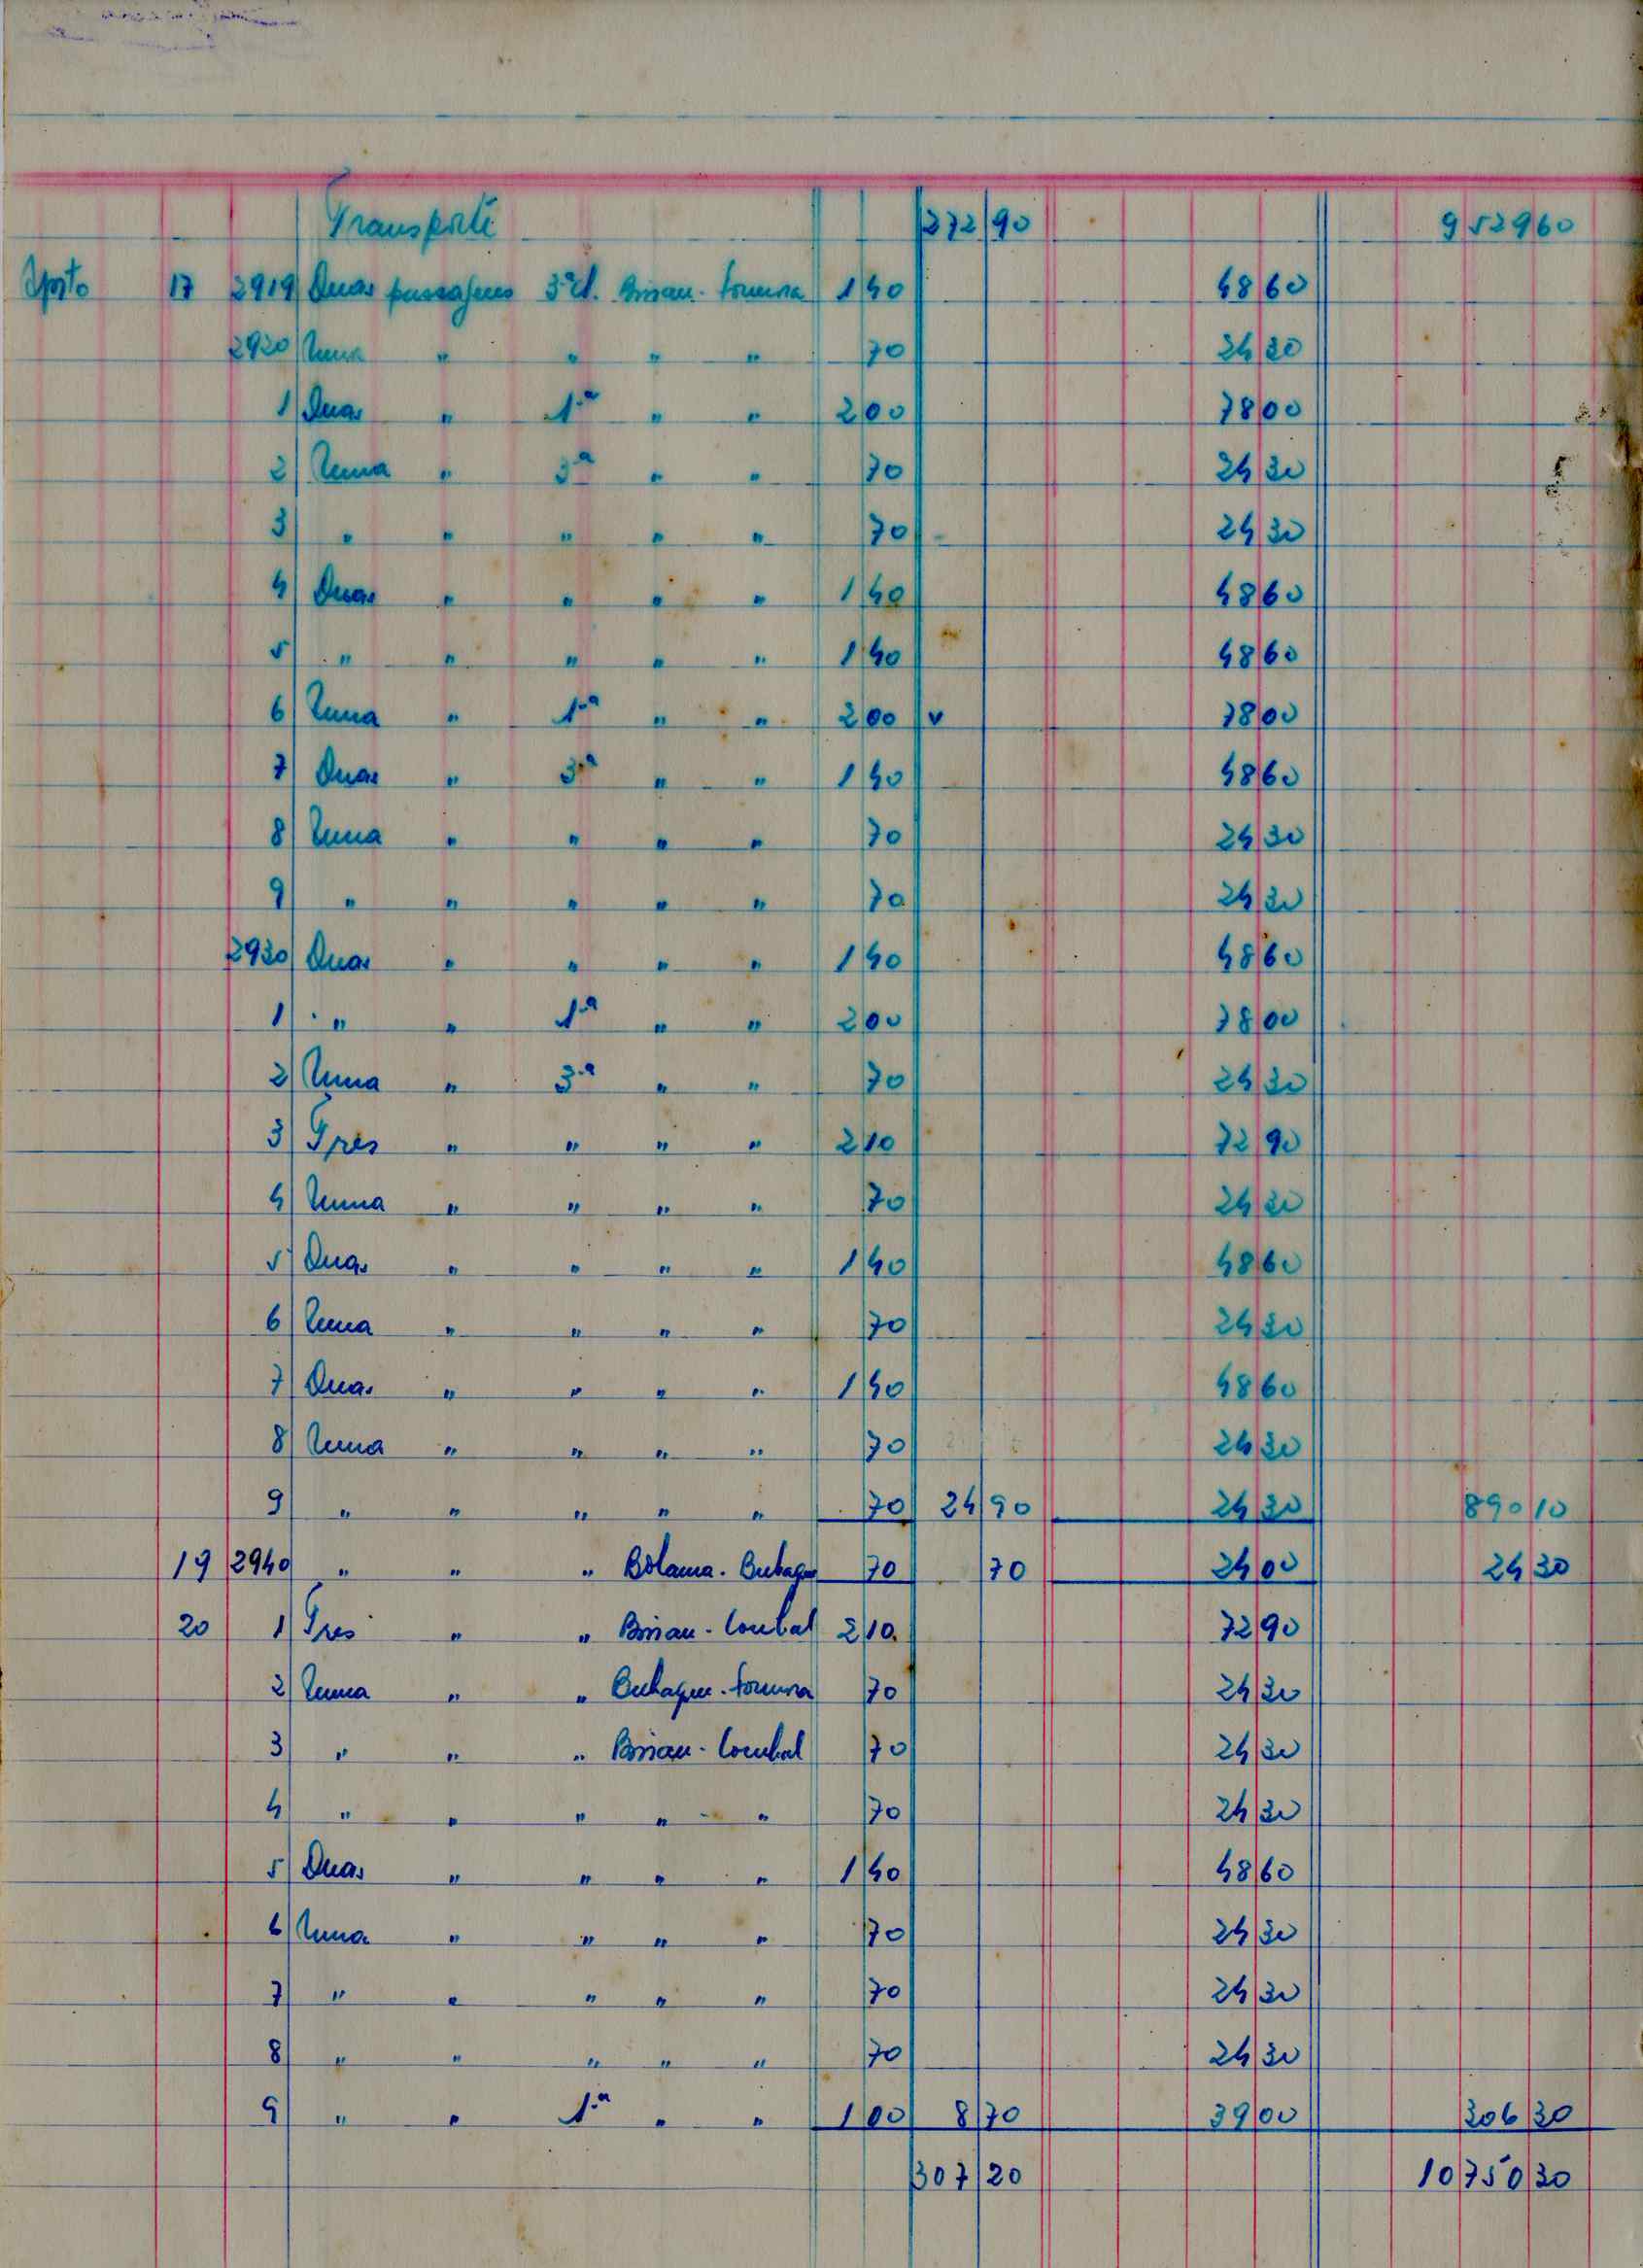 Transporte 272 90 9529 60
Agosto 17 2919 Duas passagens 3ª cl. Bissau - 1 40 48 60
2920 Uma " " " " 70 24 30
1 Duas " 1.ª " " 2 00 78 00
2 Uma " 3ª " " 70 24 30
3 " " " " " 70 24 30
4 Duas " " " " 1 40 48 60
5 " " " " " 1 40 48 60
6 Uma " 1.ª " " 2 00 v 78 00
7 Duas " 3.ª " " 1 40 48 60
8 Uma " " " " 70 24 30
9 " " " " " 70 24 30
2930 Duas " " " " 1 40 48 60
1 " " 1.ª " " 2 00 78 00
2 Uma " 3.ª " " 70 24 30
3 Tres " " " " 2 10 72 90
4 Uma " " " " 70 24 30
5 Duas " " " " 1 40 48 60
6 Uma " " " " 70 24 30
7 Duas " " " " 1 40 48 60
8 Uma " " " " 70 24 30
9 " " " " " 70 24 90 24 30 890 10
19 2940 " " " Bolama - Bubaque 70 70 24 00 24 30
20 1 Tres " " Bissau - 2 10 72 90
2 Uma " " Bubaque - 70 24 30
3 " " " Bissau - 70 24 30
4 " " " " - " 70 24 30
5 Duas " " " " 1 40 48 60
6 Uma " " " " 70 24 30
7 " " " " " 70 24 30
8 " " " " " 70 24 30
9 " " 1.ª " " 1 00 8 70 39 00 306 30
307 20 10750 30